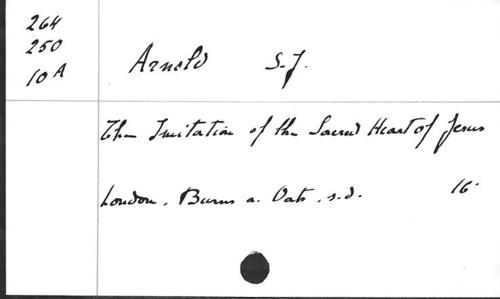 264
250
10 A
Arnold S.J.
The Imitation of the Sacred Heart of Jesus
London. Burns a. Oats, s.d. 16°